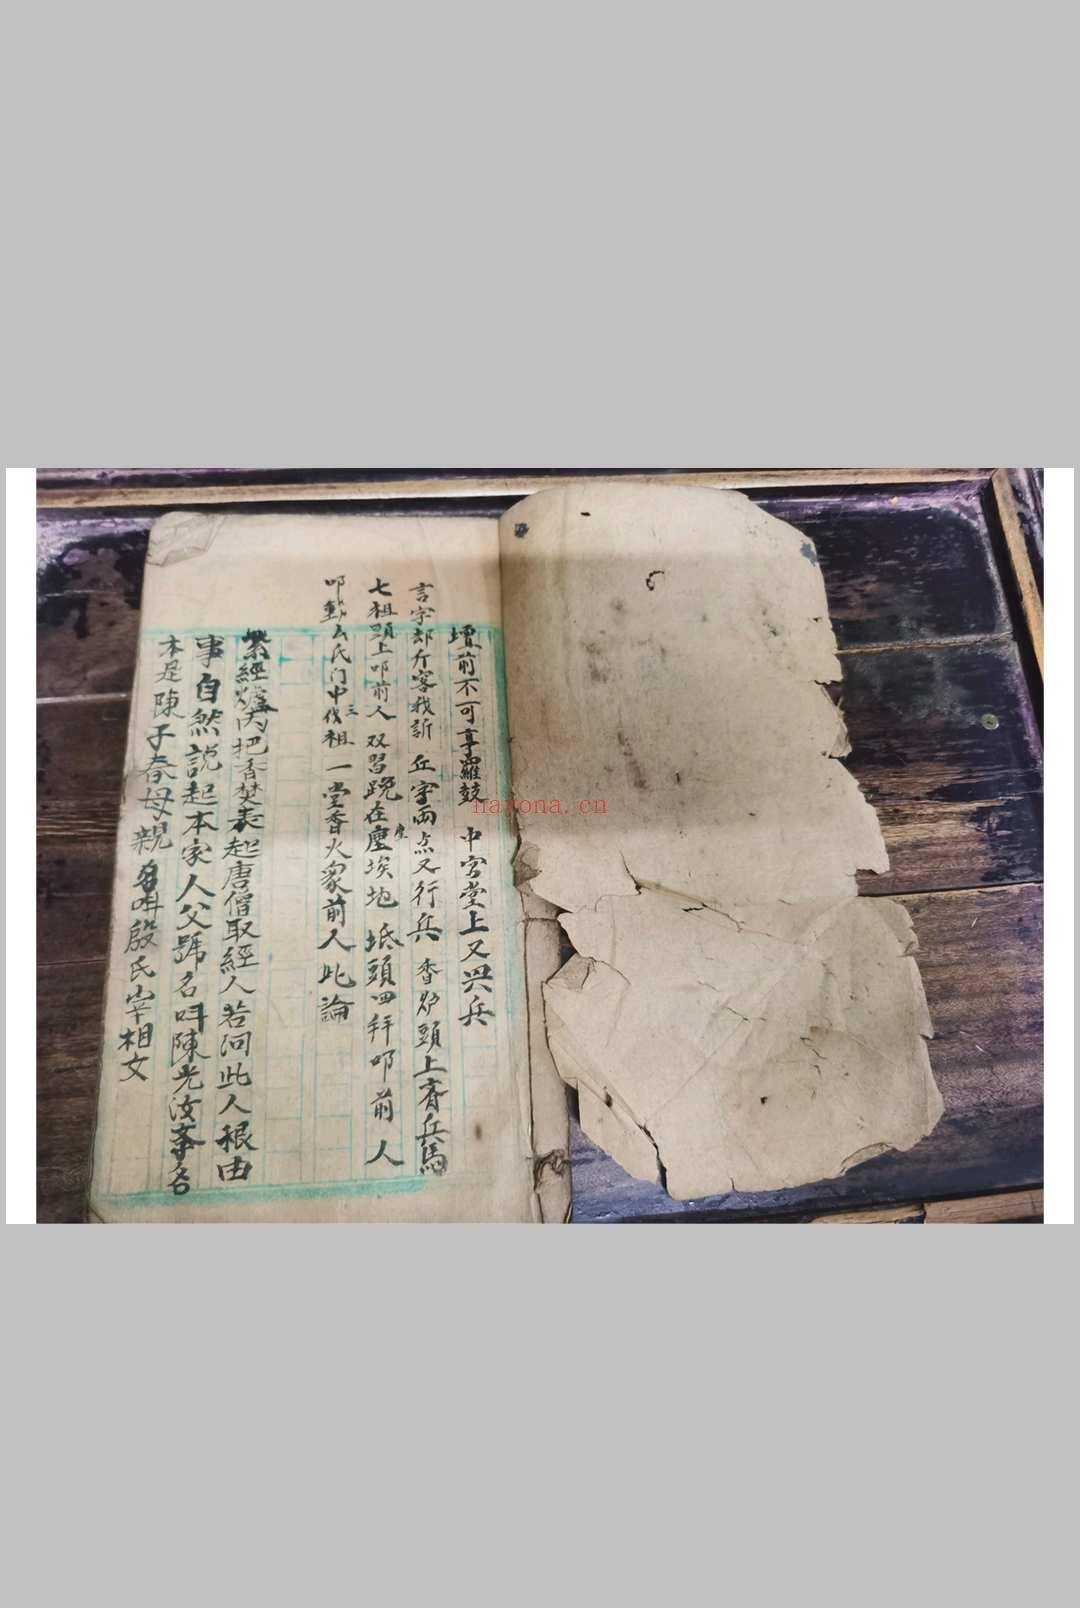 壇前不可享羅鼓 中宮堂上又兴兵
言字却斤客我訴 丘字両点又行兵 香炉頭上齊兵馬
七祖頭上叩前人 双習跪在塵埃地 坻頭四拜叩前人
叩動厶氏门中三伐祖 一堂香火衆前人 此論
繁經爐内把香焚 表起唐僧取經人 若问此人根由
事自然説起本家人父號名叫陳光汝
本是陳子春母親名叫殷氏宰相文
nayona.cn